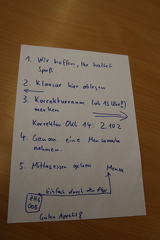 1. Wir hoffen, Ihr hattet
Spaß
2. Klausur hier ablegen
3. Korrekturraum (ab 13 Uhr!)
merken
Korrektur OH 14: 2.102
4. Genau eine Mensamarke
nehmen.
5. Mittagessen gehen
Mensa
einfach durch den Flur
Guten Appetit!